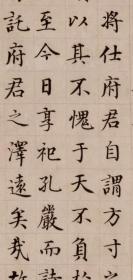 將仕府君自謂方寸
以其不愧于天不負
至今日享祀孔嚴而詩
託府君之澤遠矣哉故